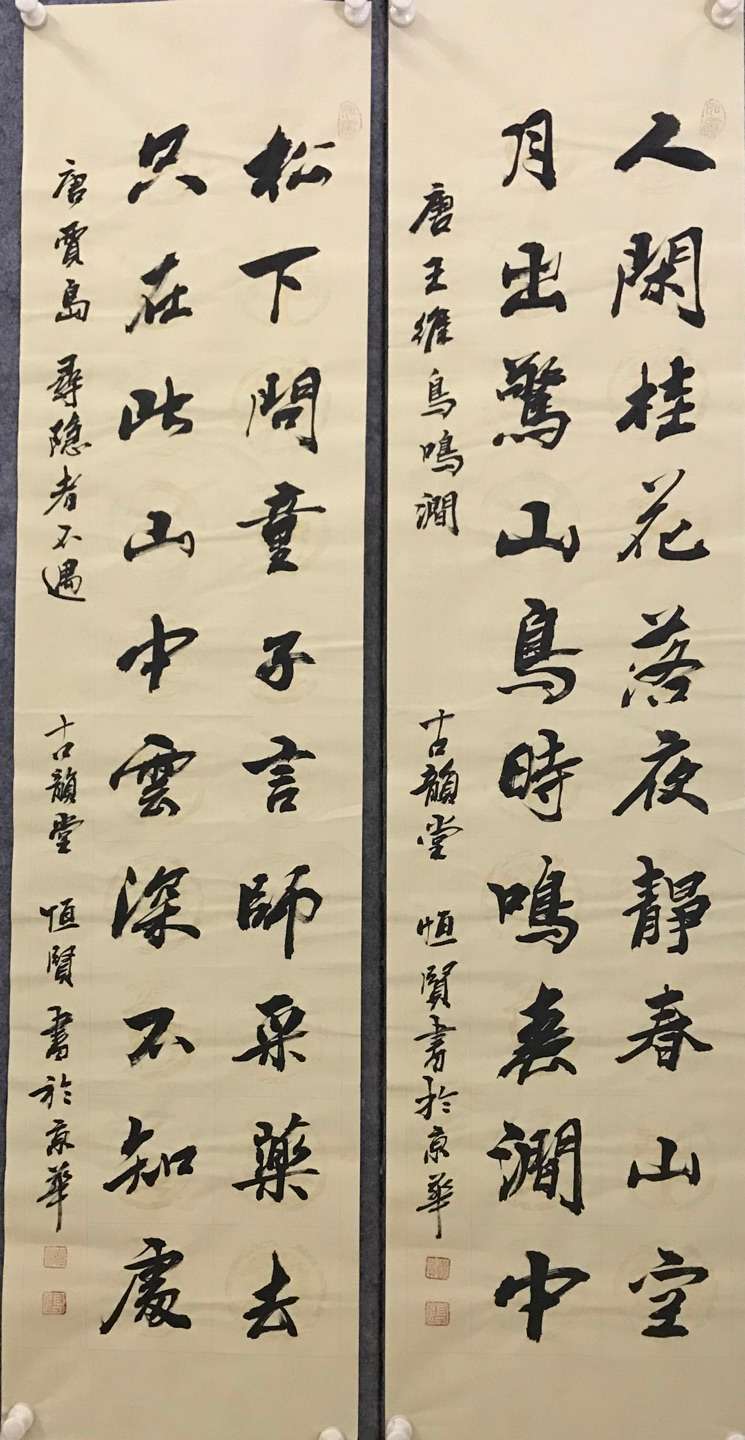 人閑桂花落夜靜春山空
月出驚山鳥時鳴春澗中
唐王維鳥鳴澗 古韻堂 恒賢書於京華
松下問童子言師采藥去
只在此山中雲深不知處
唐賈島尋隐者不遇 古韻堂 恒賢書於京華